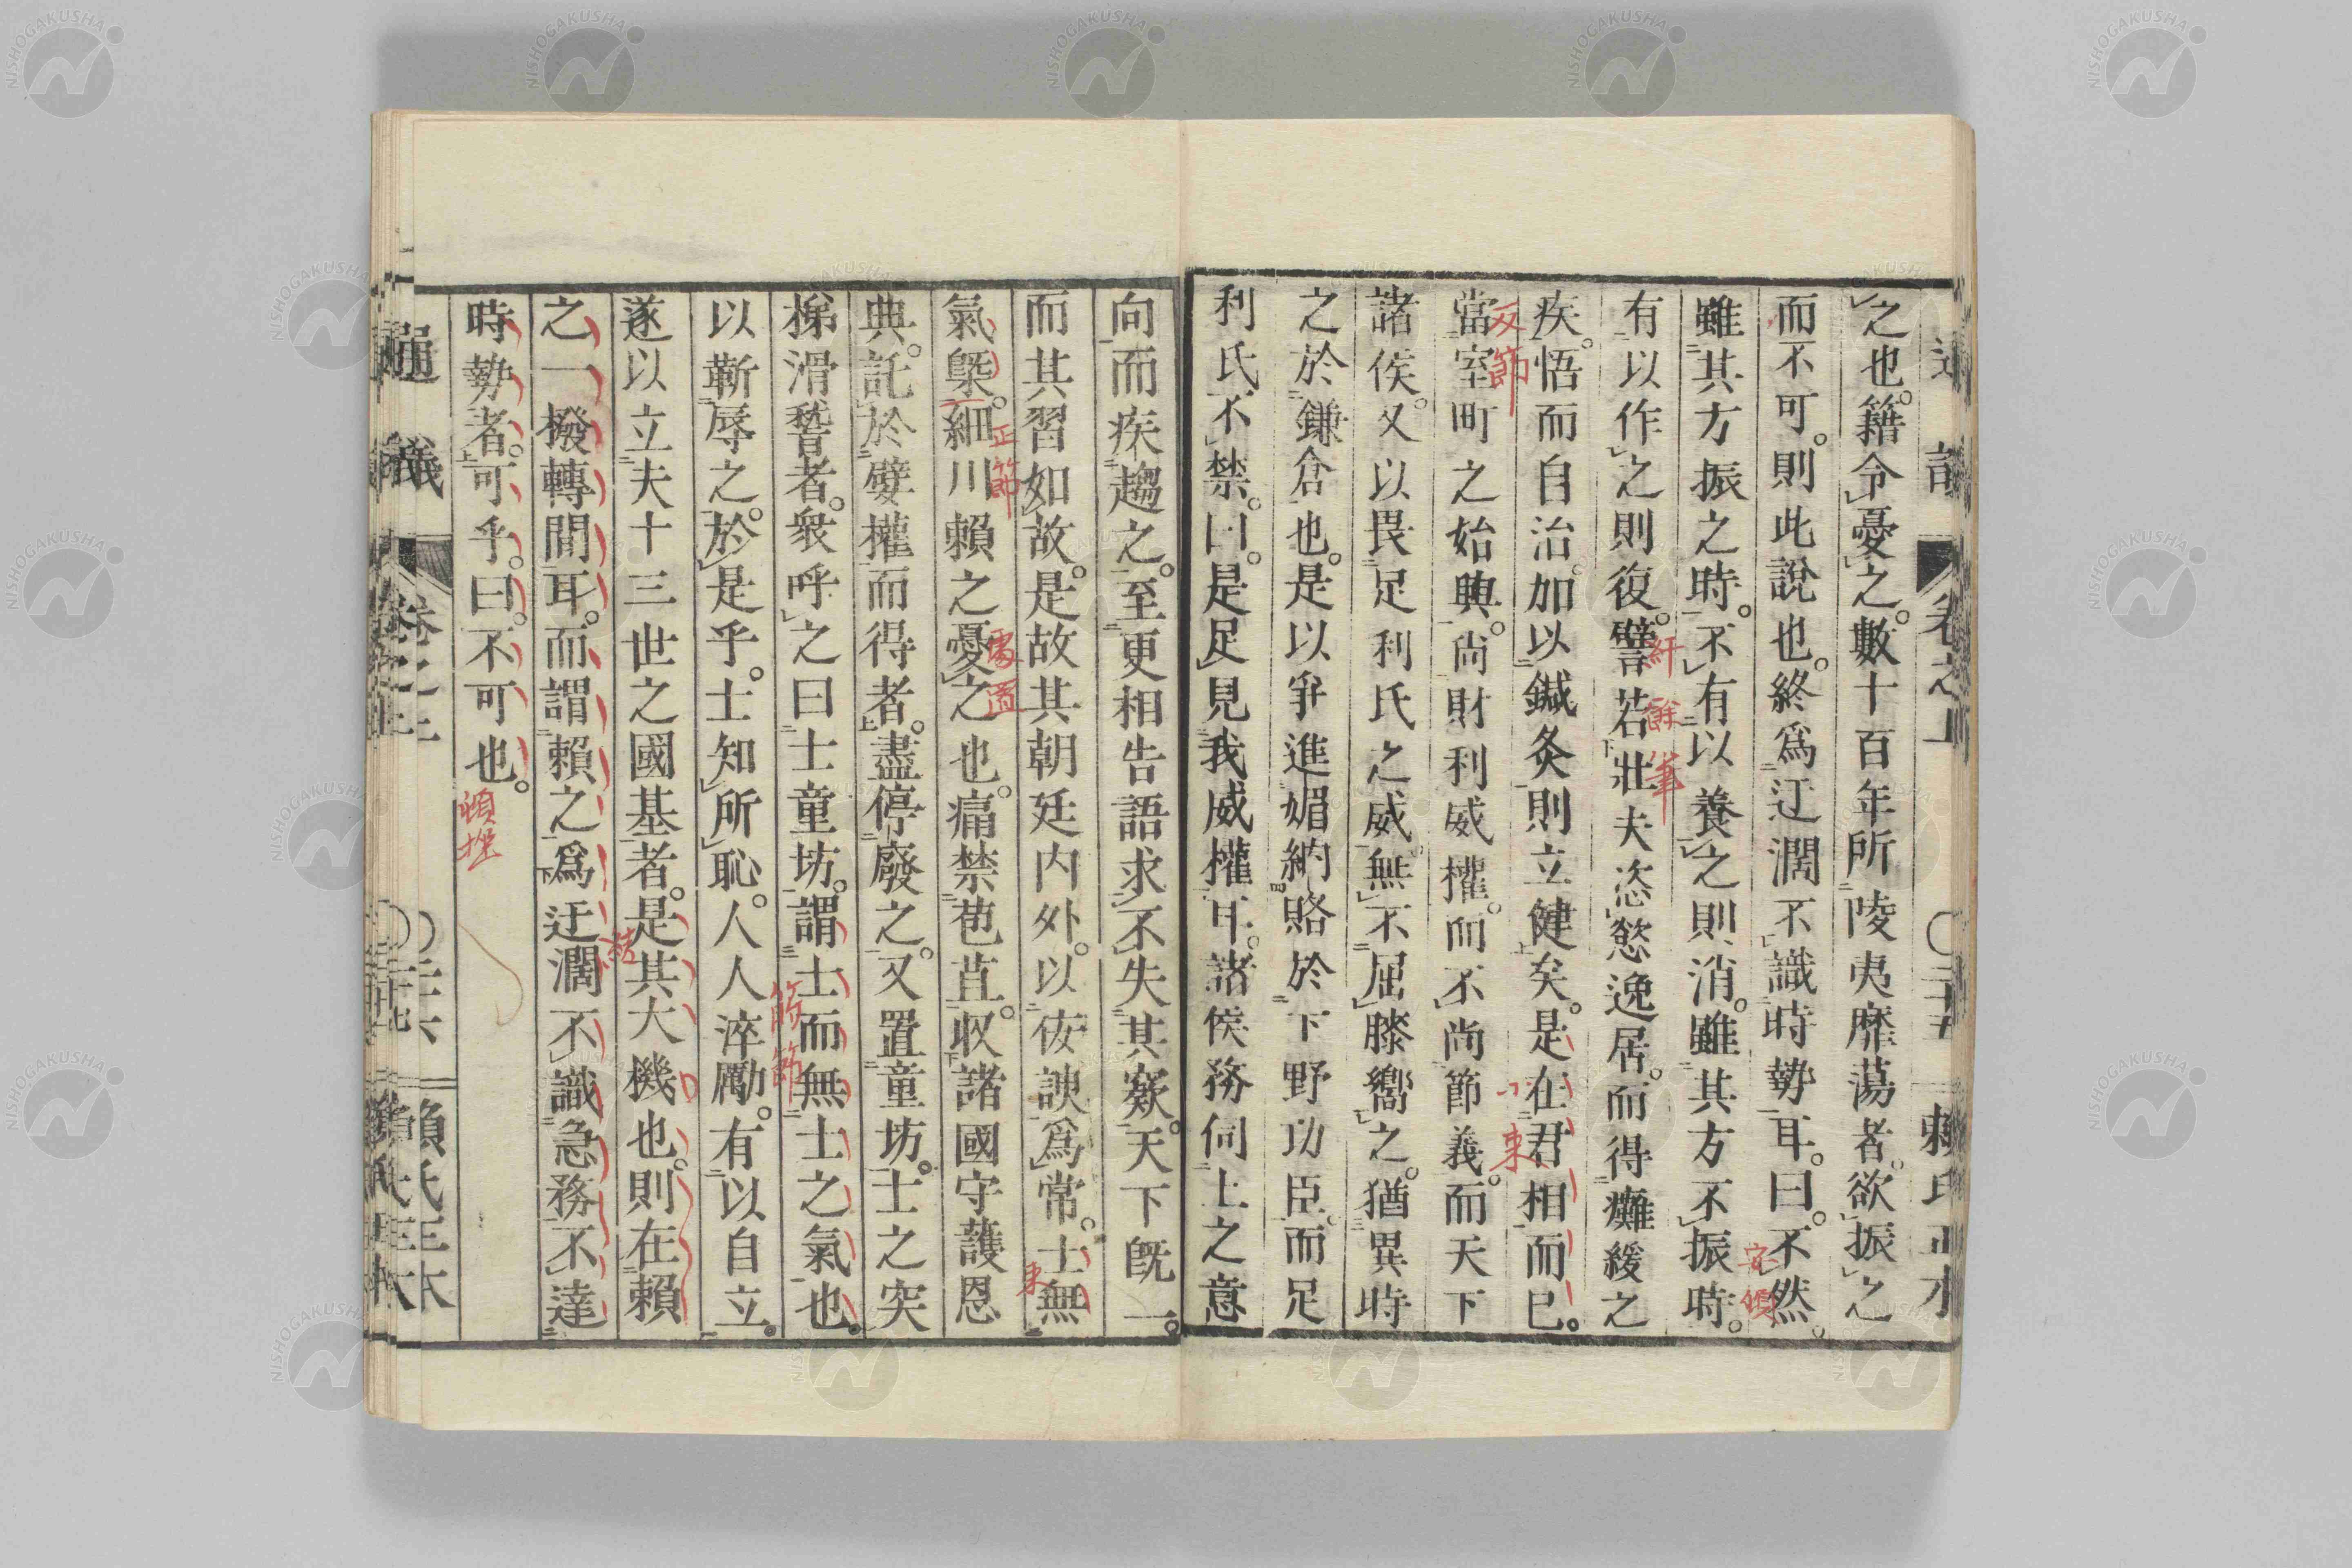 之也。籍令憂之。數十百年所陵夷靡蕩者。欲振之
而不可。則此說也。終爲迂濶不識時勢耳。曰。不然。
雖其方振之時。不有以養之則消。雖其方不振時。
有以作之則復。譬若壯夫恣慾逸居。而得癱緩之
疾。悟而自治。加以鍼灸則立健矣。是在君相而已。
當室町之始興。尚財利威權。而不尚節義。而天下
諸侯。又以畏足利氏之威。無不屈膝嚮之。猶異時
之於鎌倉也。是以爭進媚納賂於下野功臣。而足
利氏不禁。曰。是足見我威權耳。諸侯務伺上之意
向而疾趨之。至更相告語求不失其窾。天下既一。
而其習如故。是故其朝廷內外。以佞諛爲常。士無
氣槩。細川賴之憂之也。痛禁苞苴。収諸國守護恩
典。託於嬖權而得者。盡停廢之。又置童坊。士之突
梯滑稽者。衆呼之曰士童坊。謂士而無士之氣也。
以蘄辱之。於是乎。士知所恥。人人淬勵。有以自立。
遂以立夫十三世之國基者。是其大機也。則在賴
之一撥轉間耳。而謂賴之爲迂濶不識急務不達
時勢者。可乎。曰。不可也。
卷之上
賴氏正本
反節
紆餘筆
安頓
束
正節
束
節節
結
頓挫